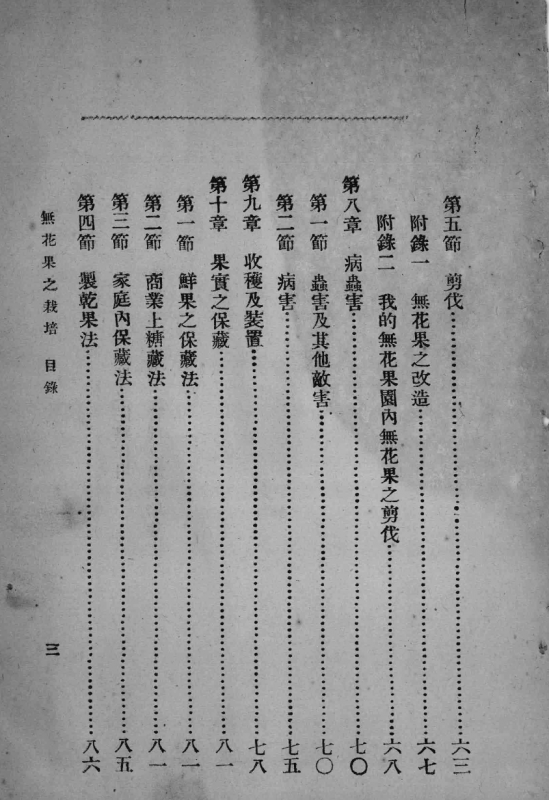 第五節　剪伐……六三
附錄一　無花果之改造……六七
附錄二　我的無花果園內無花果之剪伐……六八
第八章　病蟲害……七〇
第一節　蟲害及其他敵害……七〇
第二節　病害……七五
第九章　收穫及裝置……七八
第十章　果實之保藏……八一
第一節　鮮果之保藏法……八一
第二節　商業上糖藏法……八一
第三節　家庭內保藏法……八五
第四節　製乾果法……八六
無花果之栽培　目錄　三